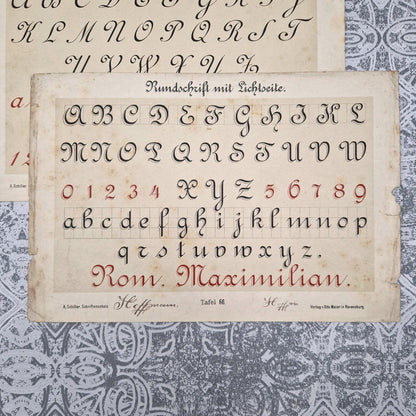 K L M N O P Q R S T
U V W X Y Z
A. Schiller
Rundschrift mit Lichtseite.
A B C D E F G H I K L
M N O P Q R S T U V W
0 1 2 3 4 X Y Z 5 6 7 8 9
a b c d e f g h i j k l m n o p
q r s t u v w x y z.
Rom. Maximilian.
A. Schiller, Schriftenschatz
Hoffmann
Tafel
Verlag v. Otto Maier in Ravensburg.